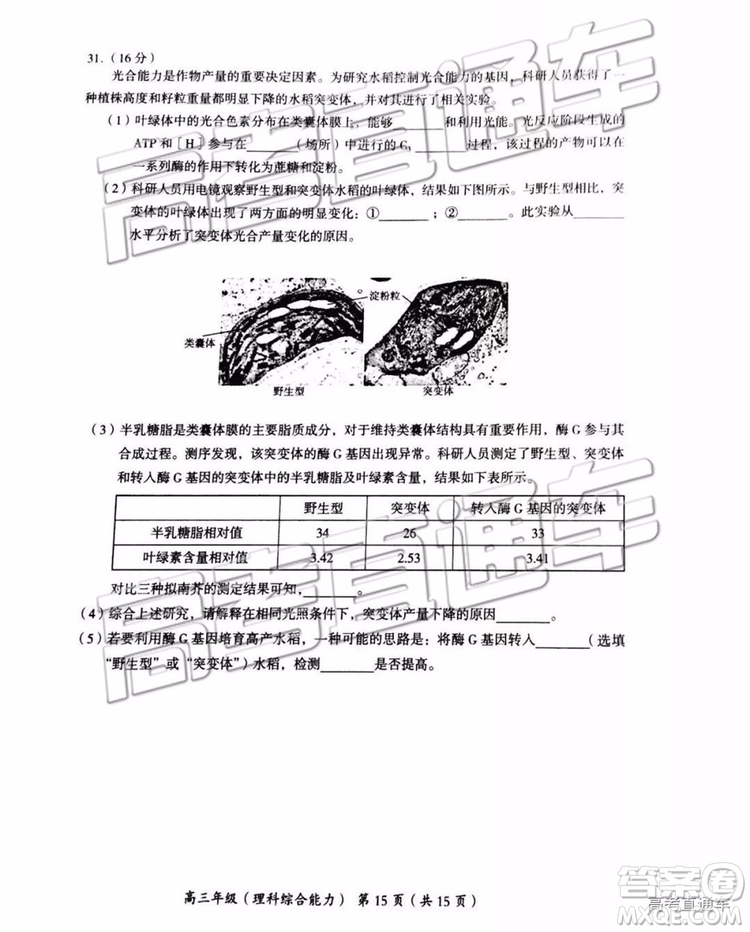 31.（16 分）
光合能力是作物产量的重要决定因素。为研究水稻控制光合能力的基因，科研人员获得了一
种植株高度和籽粒重量都明显下降的水稻突变体，并对其进行了相关实验。
（1）叶绿体中的光合色素分布在类囊体膜上，能够______和利用光能。光反应阶段生成的
ATP 和［H］参与在______（场所）中进行的 C₃______过程，该过程的产物可以在
一系列酶的作用下转化为蔗糖和淀粉。
（2）科研人员用电镜观察野生型和突变体水稻的叶绿体，结果如下图所示。与野生型相比，突
变体的叶绿体出现了两方面的明显变化：①______；②______。此实验从______
水平分析了突变体光合产量变化的原因。
淀粉粒
类囊体
野生型 突变体
（3）半乳糖脂是类囊体膜的主要脂质成分，对于维持类囊体结构具有重要作用，酶 G 参与其
合成过程。测序发现，该突变体的酶 G 基因出现异常。科研人员测定了野生型、突变体
和转入酶 G 基因的突变体中的半乳糖脂及叶绿素含量，结果如下表所示。
野生型 突变体 转入酶 G 基因的突变体
半乳糖脂相对值 34 26 33
叶绿素含量相对值 3.42 2.53 3.41
对比三种拟南芥的测定结果可知，______。
（4）综合上述研究，请解释在相同光照条件下，突变体产量下降的原因______。
（5）若要利用酶 G 基因培育高产水稻，一种可能的思路是：将酶 G 基因转入______（选填
“野生型”或“突变体”）水稻，检测______是否提高。
高三年级（理科综合能力） 第 15 页（共 15 页）
高考直通车
高考直通车
高考直通车
高考直通车
答案圈
MXQE.COM